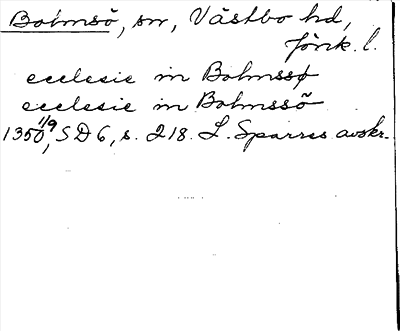 Bolmsö, sn, Västbo hd,
Jönk. l.
ecclesie in Bolmssø
ecclesie in Bolmssö
1350 1/9, SD 6, s. 218. L. Sparres avskr.